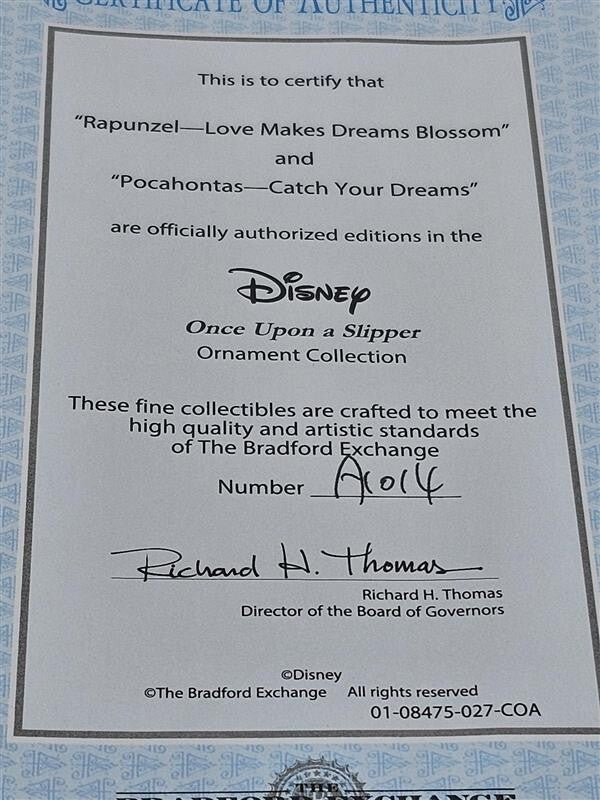 CERTIFICATE OF AUTHENTICITY
This is to certify that
"Rapunzel—Love Makes Dreams Blossom"
and
"Pocahontas—Catch Your Dreams"
are officially authorized editions in the
Disney
Once Upon a Slipper
Ornament Collection
These fine collectibles are crafted to meet the
high quality and artistic standards
of The Bradford Exchange
Number A1014
Richard H. Thomas
Richard H. Thomas
Director of the Board of Governors
©Disney
©The Bradford Exchange All rights reserved
01-08475-027-COA
THE
BRADFORD EXCHANGE